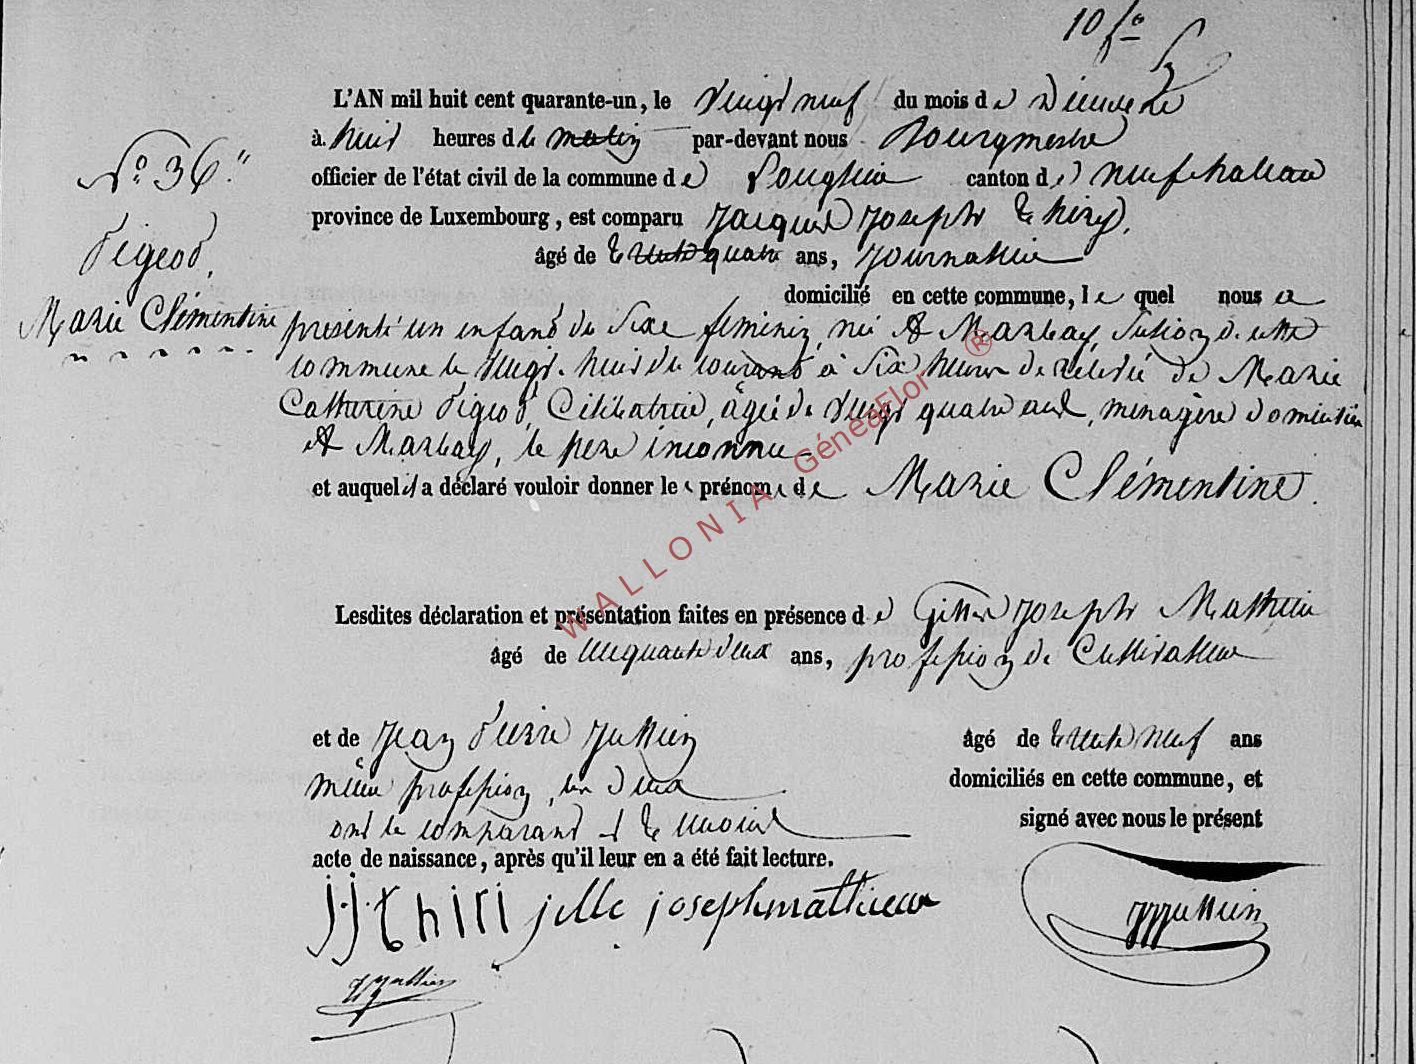 10 fo
L'AN mil huit cent quarante-un, le vingt neuf du mois de Décembre
à huit heures de le matin par-devant nous Bourgmestre
N° 36.
officier de l'état civil de la commune de Louftémont canton de neufchateau
province de Luxembourg, est comparu Jacques Joseph thiry,
Pigeod,
âgé de trente quatre ans, Journallier
domicilié en cette commune, le quel nous a
Marie Clémentine
présenté un enfant du sexe feminin, né à Marbay, Section de cette
commune le vingt-huit du courant à Six heures de relevée de Marie
Catherine Pigeod, Célibataire, âgée de vingt quatre ans, menagère domiciliée
à Marbay, le père inconnu
et auquel il a déclaré vouloir donner le s prénom s de Marie Clémentine.
Lesdites déclaration et présentation faites en présence de Joseph Mathieu
âgé de cinquante deux ans, profession de Cultivateur
et de Jean Pierre Jullien âgé de trente neuf ans
même profession, les deux domiciliés en cette commune, et
ont le comparant et le temoins signé avec nous le présent
acte de naissance, après qu'il leur en a été fait lecture.
j.j. thiri jille joseph mathieu Jullien
WALLONIA GénéaFlor ®